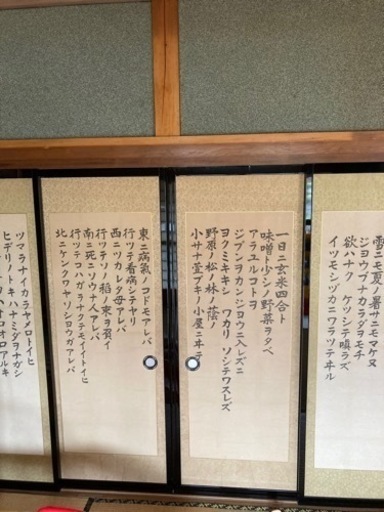 雪ニモ夏ノ暑サニモマケヌ
ジヨウブナカラダヲモチ
欲ハナク
ケツシテ瞋ラズ
イツモシヅカニワラツテヰル
一日ニ玄米四合ト
味噌ト少シノ野菜ヲタベ
アラユルコトヲ
ジブンヲカンジヨウニ入レズニ
ヨクミキキシ
ワカリ
ソシテワスレズ
野原ノ松ノ林ノ蔭ノ
小サナ萓ブキノ小屋ニヰテ
東ニ病氣ノコドモアレバ
行ツテ看病シテヤリ
西ニツカレタ母アレバ
行ツテソノ稻ノ束ヲ負ヒ
南ニ死ニソウナ人アレバ
行ツテコハガラナクテモイイトイヒ
北ニケンクワヤソシヨウガアレバ
ツマラナイカラヤメロトイヒ
ヒデリノトキハナミダヲナガシ
オロオロアルキ